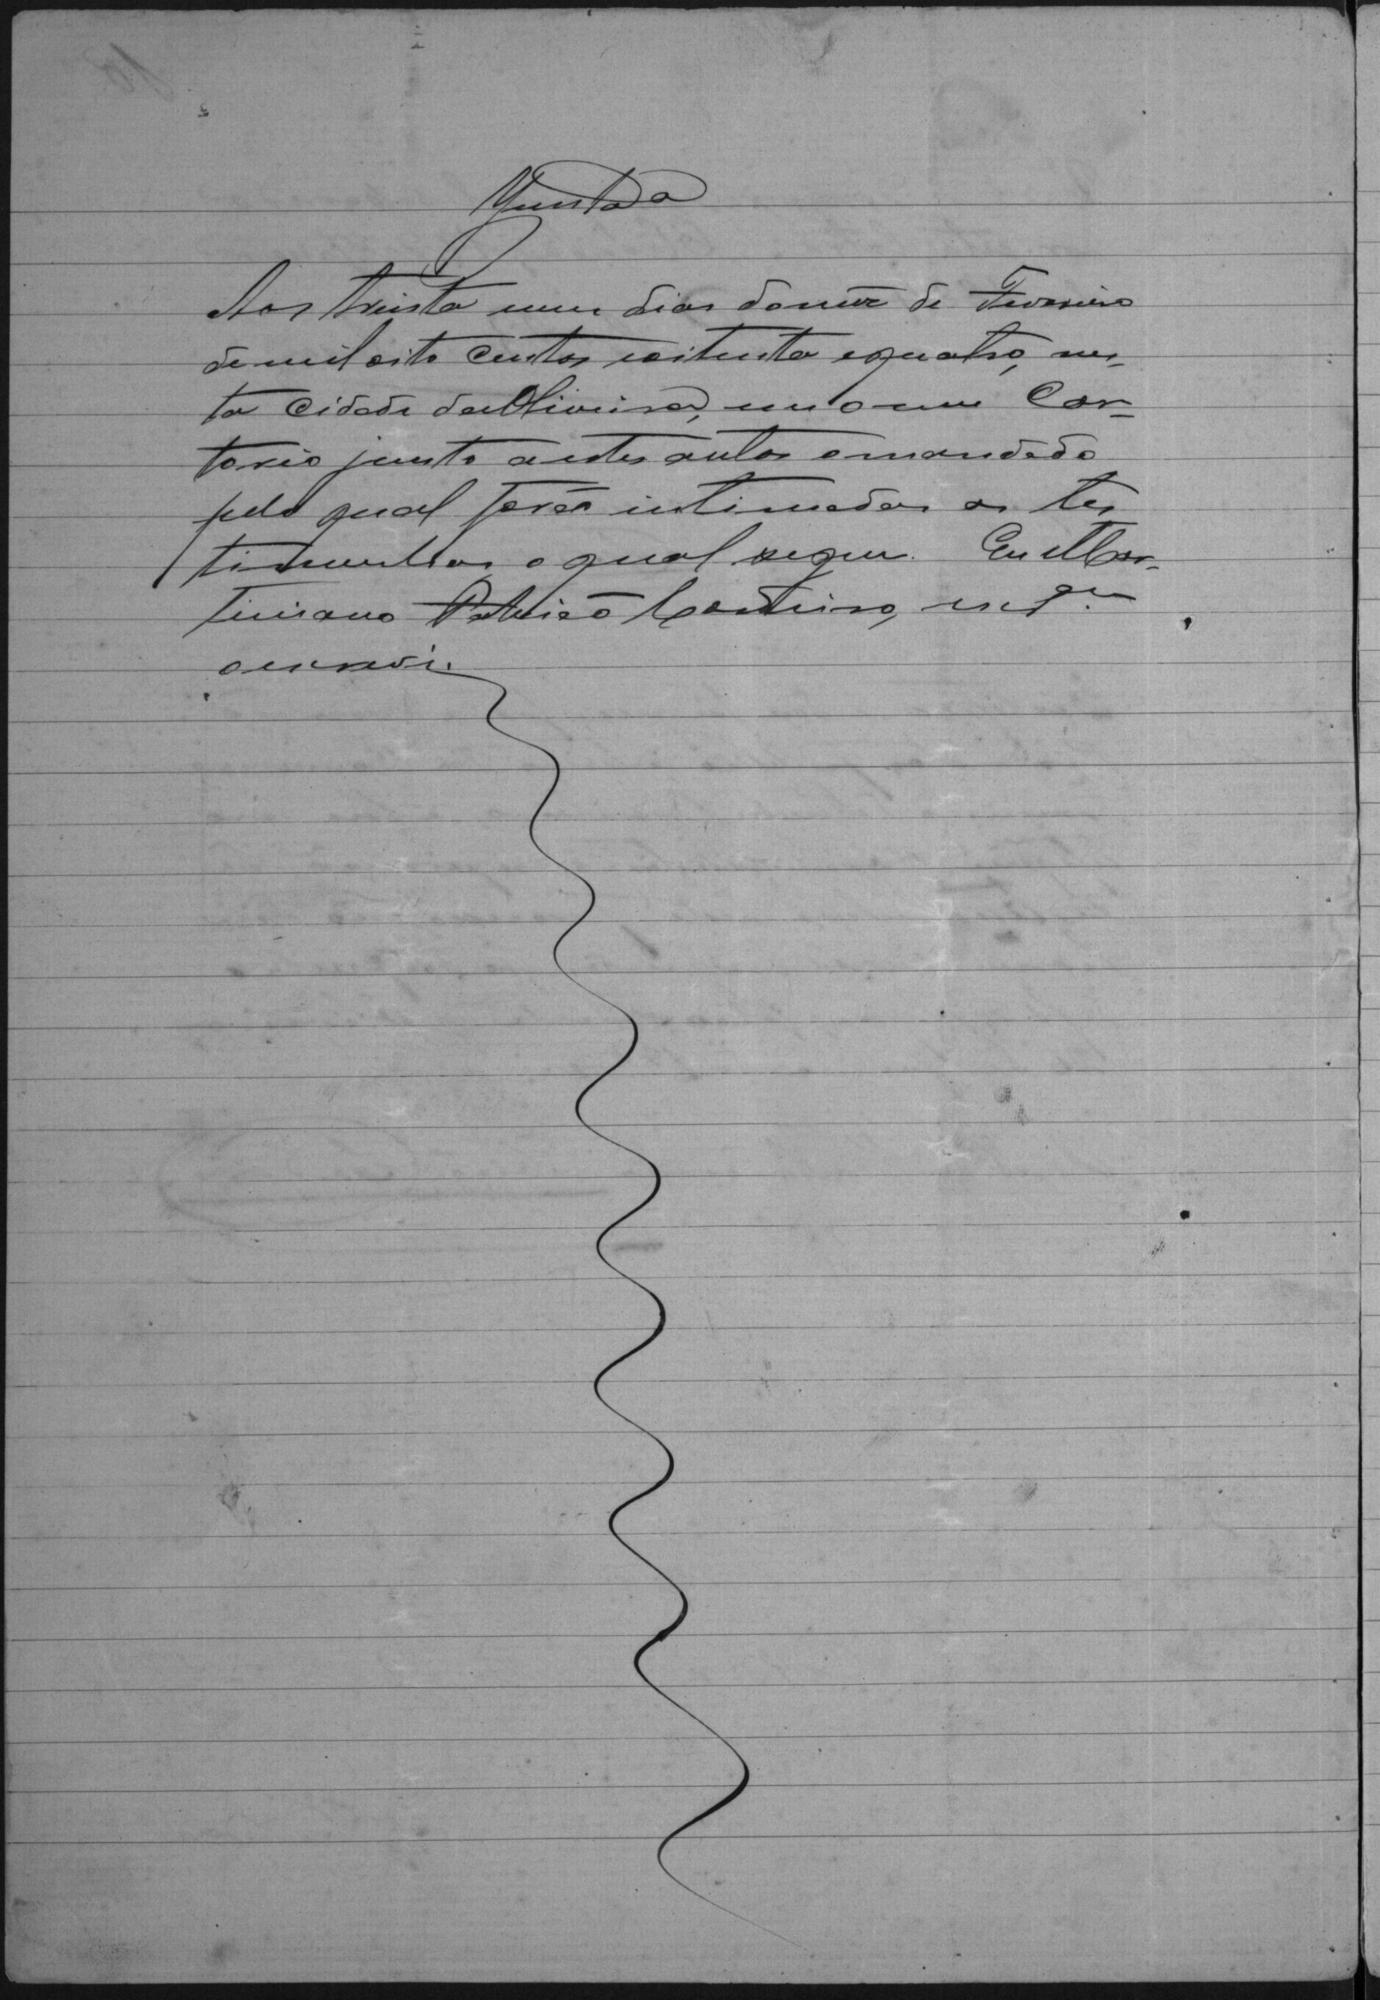 Juntada
Aos trinta e um dias do mez de Fevereiro
de mil oito centos e oitenta e quatro, nes-
ta Cidade da Oliveira, em o meu Car-
torio junto a estes autos o mandado
pelo qual forão intimadas as tes
timunhas, o qual segue. Eu Mar-
tiniano
o escrevi.